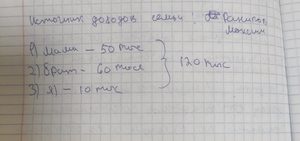 Источник доходов семьи: Рахимов
Максим
1) мама – 50 тыс
2) брат – 60 тысс
3) Я) – 10 тыс
120 тыс